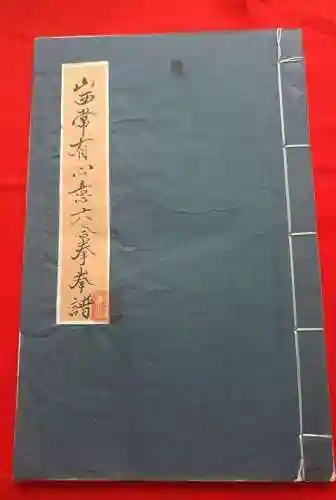 山西常有心意六合拳拳譜